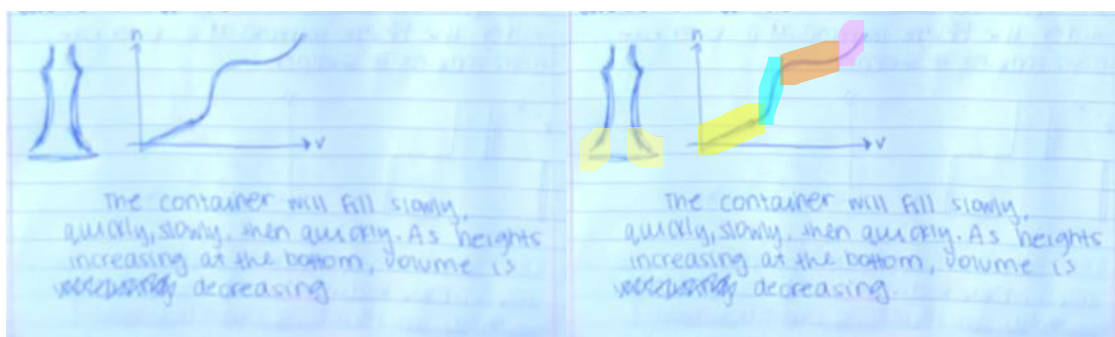 h
v
The container will fill slowly,
quickly, slowly, then quickly. As heights
increasing at the bottom, volume is
decreasing.
h
v
The container will fill slowly,
quickly, slowly, then quickly. As heights
increasing at the bottom, volume is
decreasing.